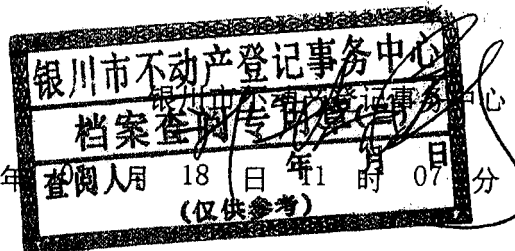 银川市不动产登记事务中心
银川市不动产登记事务中心
档案查阅专用章
年 月 日
查阅人
年 月 18 日 11 时 07 分
(仅供参考)